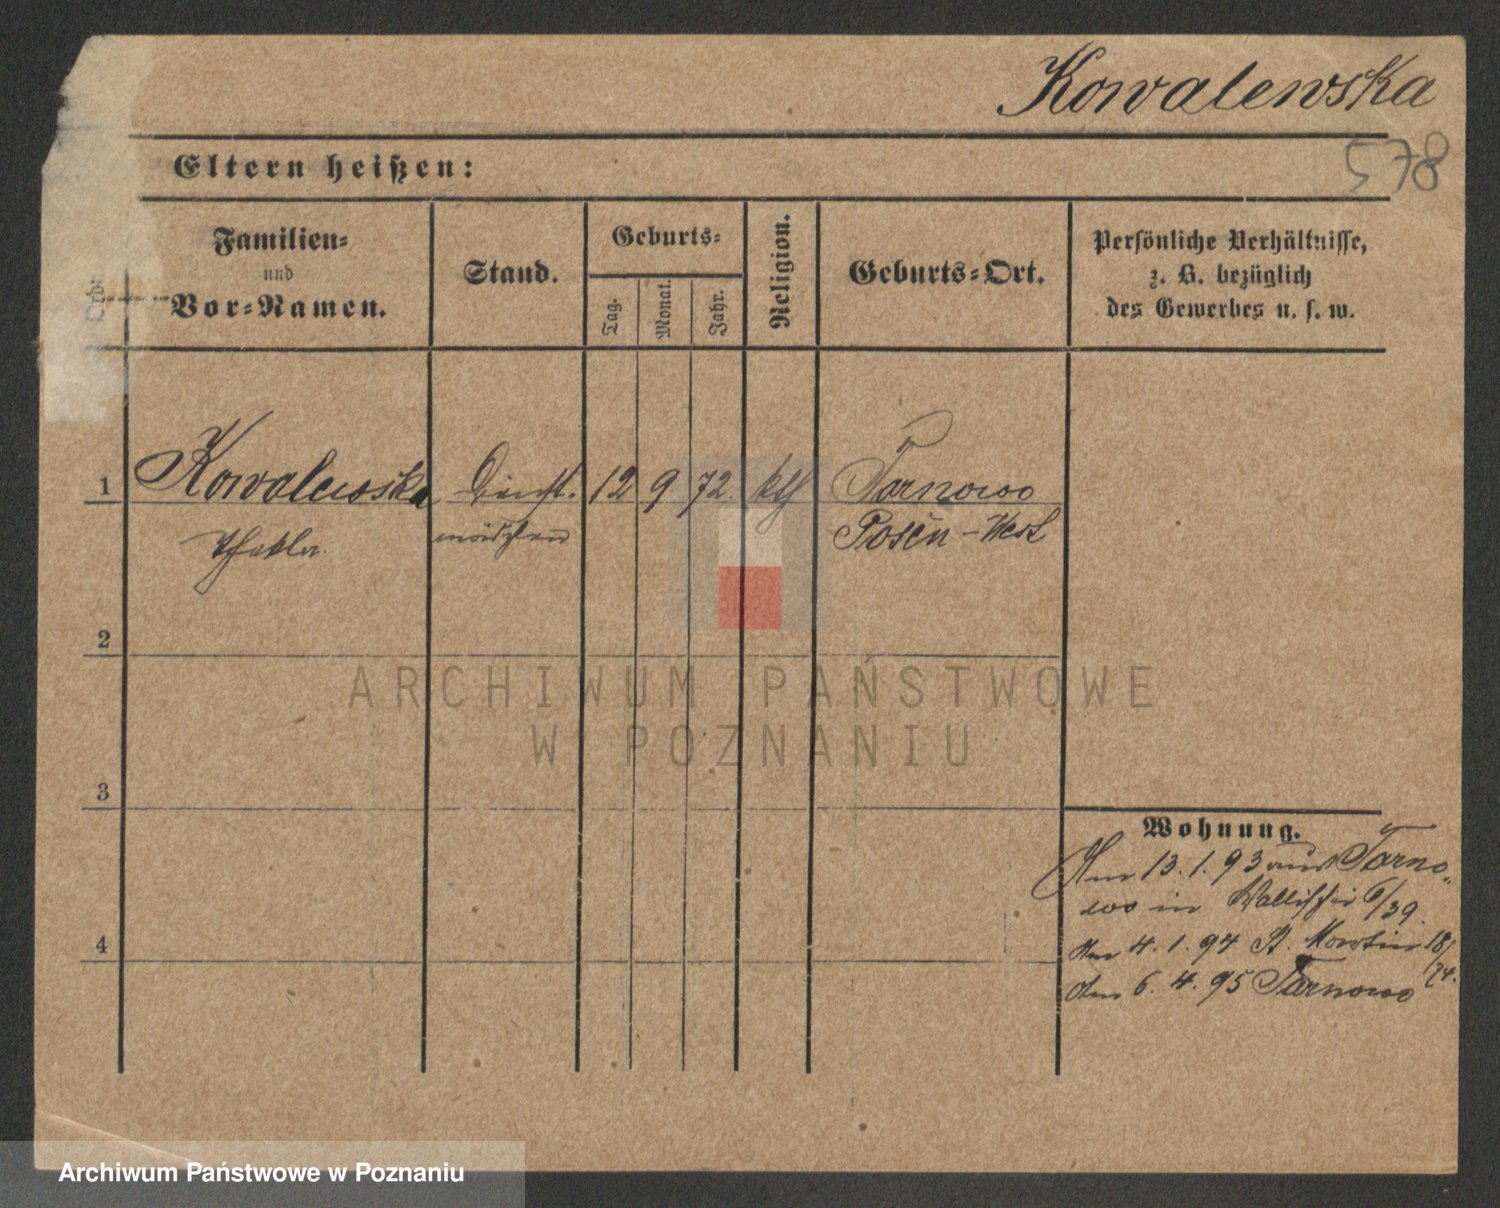 Kowalewska
578
Eltern heißen:
Familien-
und
Vor-Namen.
Stand.
Geburts-
Tag.
Monat.
Jahr.
Religion.
Geburts-Ort.
Persönliche Verhältnisse,
z. B. bezüglich
des Gewerbes u. s. w.
1
Kowalewska
Thekla
Dienst-
mädchen
12
9
72.
kth
Tarnowo
Posen-West
2
3
4
Wohnung.
Am 13.1.93 aus Tarno-
wo in Wallischei 6/39.
den 4.1.94 St. Martin 18/
74.
den 6.4.95 Tarnowo
ARCHIWUM PAŃSTWOWE
W POZNANIU
Archiwum Państwowe w Poznaniu